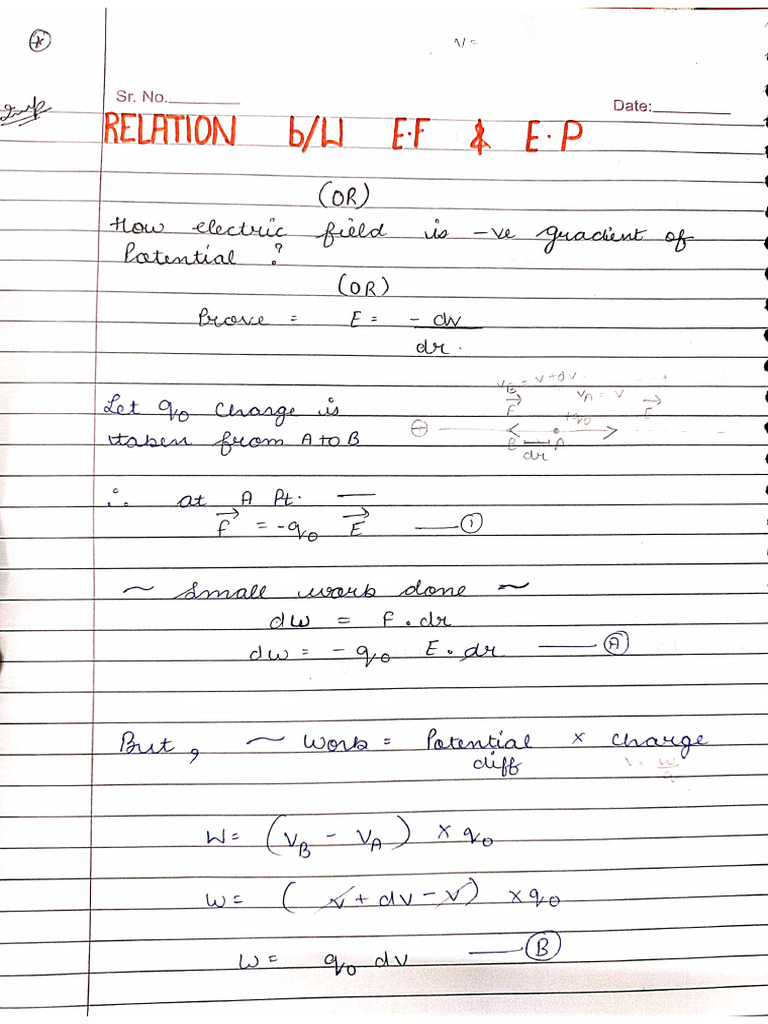 V =
Imp
Sr. No.
Date:
RELATION b/W E.F & E.P
(OR)
How electric field is -ve gradient of
Potential ?
(OR)
Prove = E = -dv
dr.
VB = V+dV VA = V
F E
Let q0 charge is
+q0
⊕ B A
taken from A to B
dr
∴ at A Pt. —
F = -q0 E — ①
~ Small work done ~
dw = F . dr
dw = - q0 E . dr — Ⓐ
But, ~ Work = Potential × charge
diff
V = w/q
W = (VB - VA) × q0
W = ( V + dv - V) × q0
W = q0 dv — Ⓑ